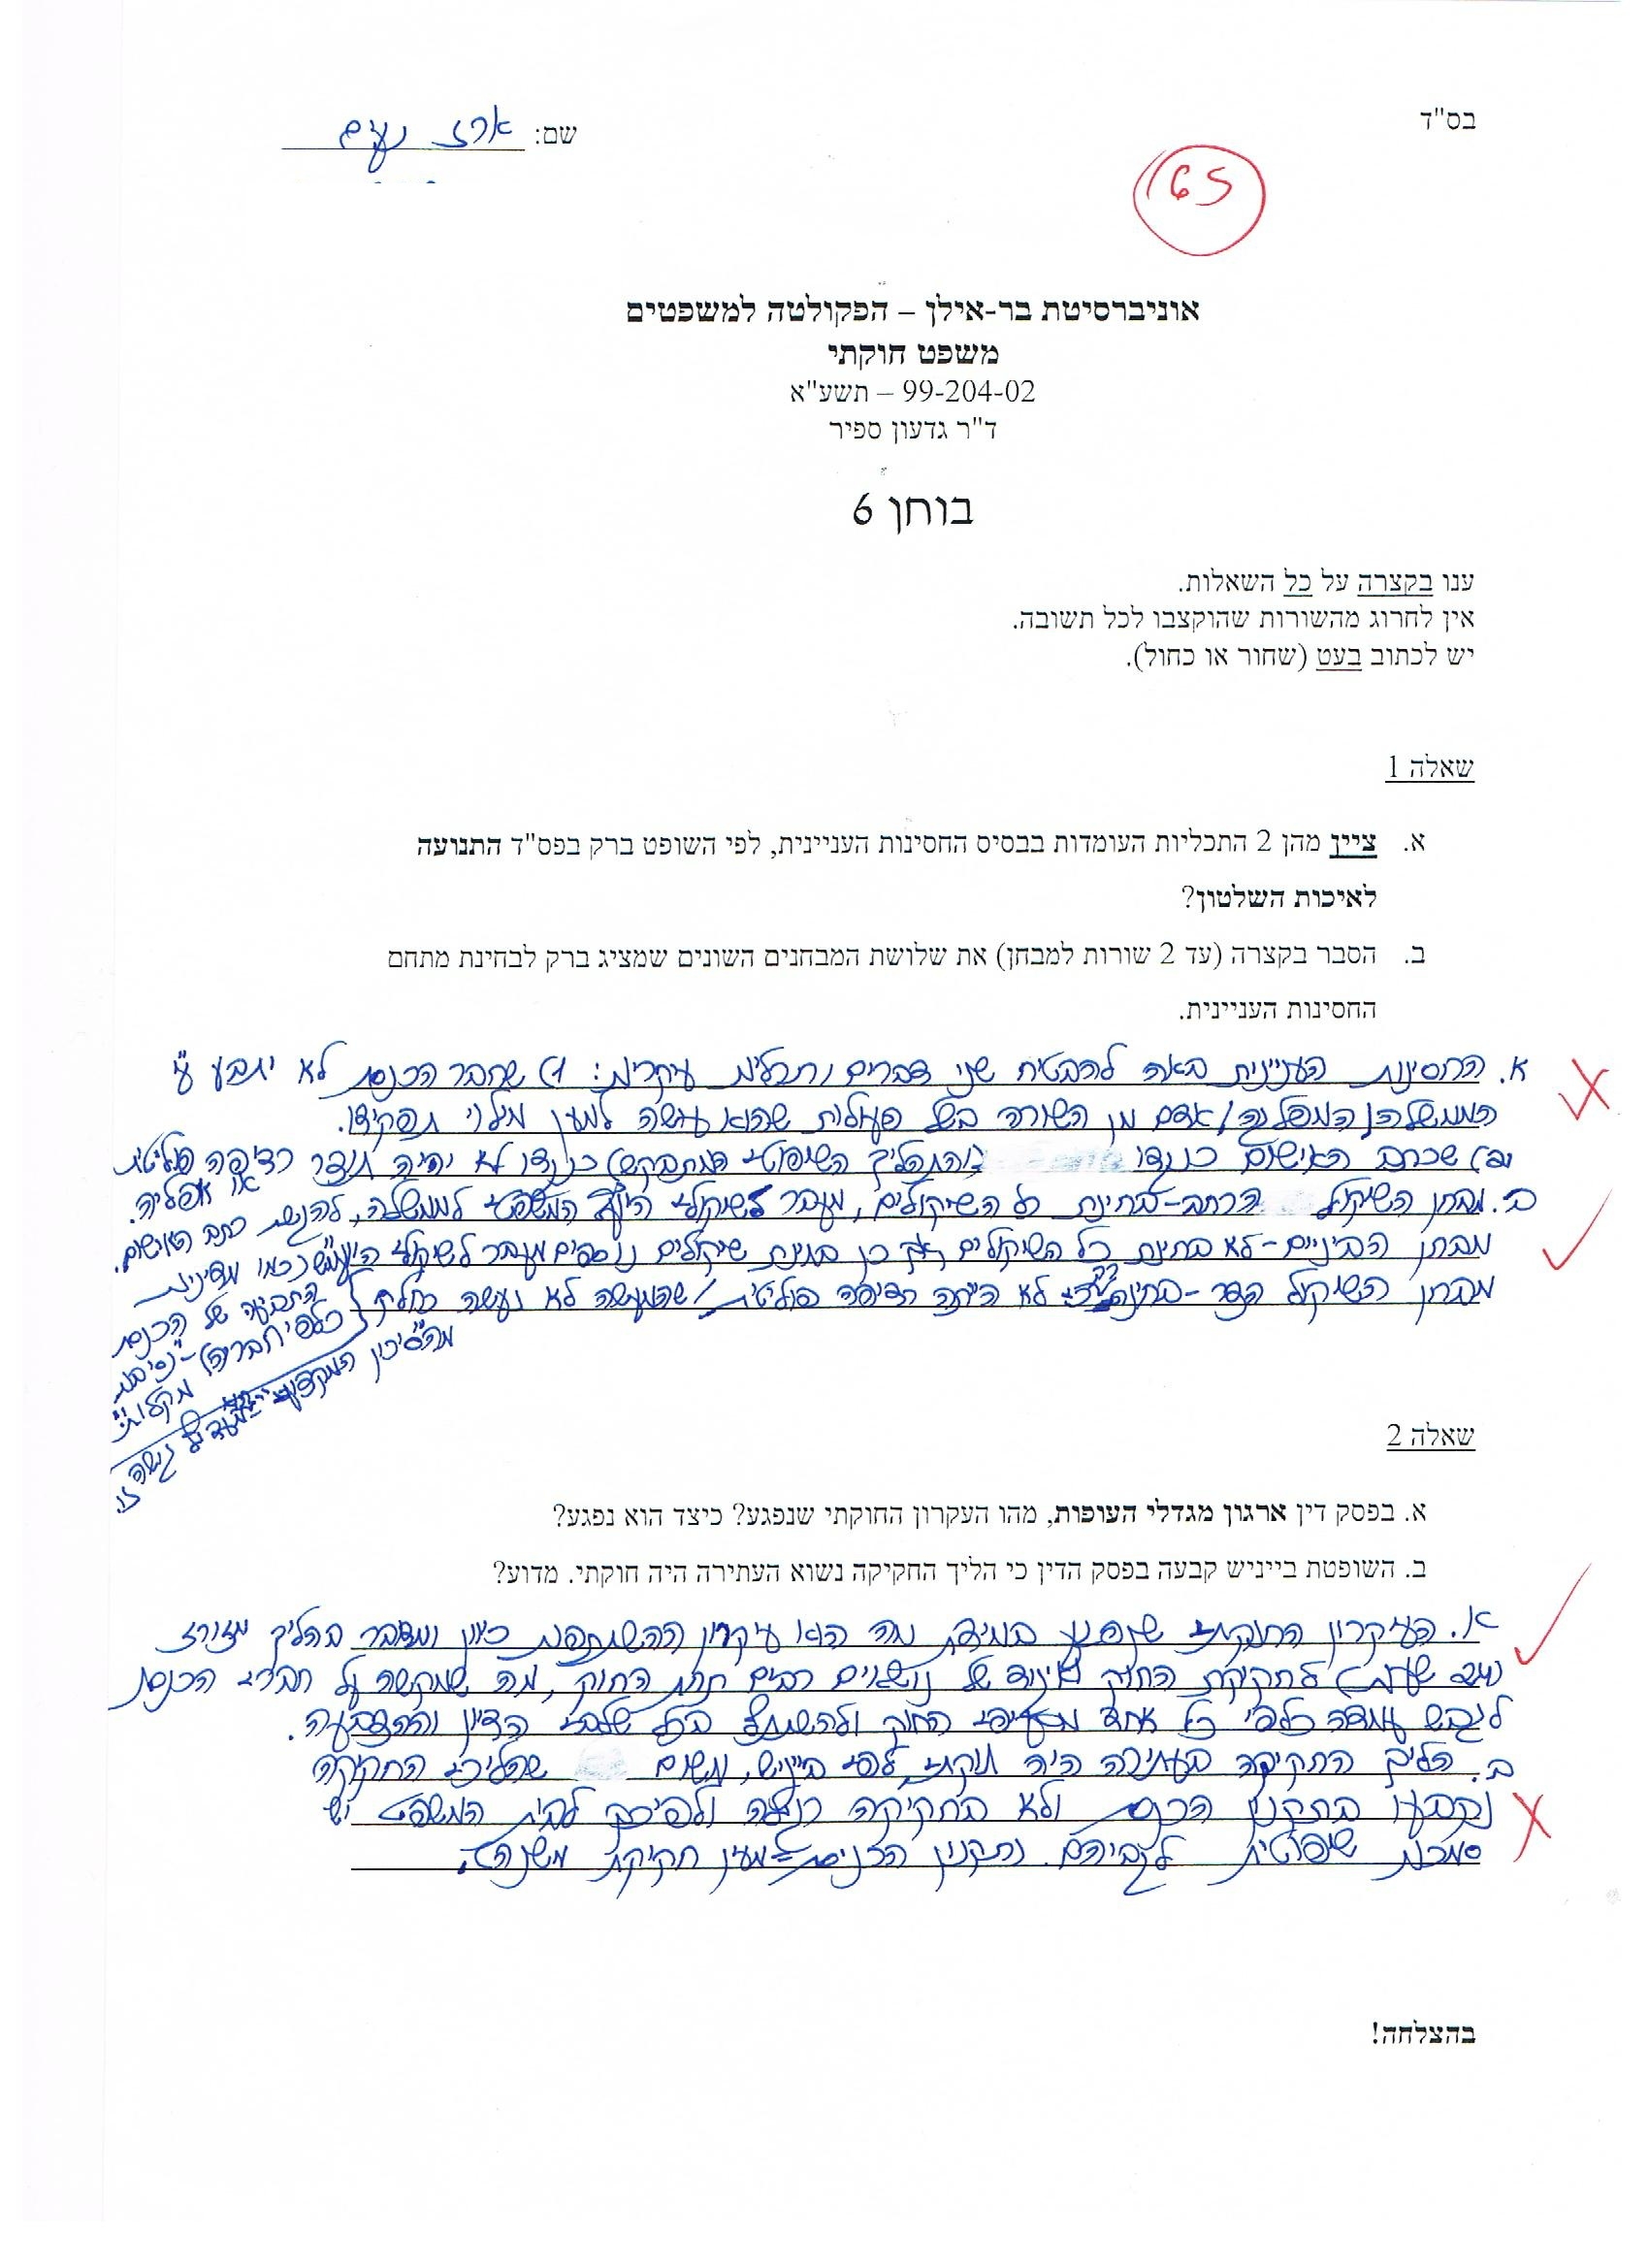 בס"ד
שם: ארז נעים
65
אוניברסיטת בר-אילן – הפקולטה למשפטים
משפט חוקתי
99-204-02 – תשע"א
ד"ר גדעון ספיר
בוחן 6
ענו בקצרה על כל השאלות.
אין לחרוג מהשורות שהוקצבו לכל תשובה.
יש לכתוב בעט (שחור או כחול).
שאלה 1
א. ציין מהן 2 התכליות העומדות בבסיס החסינות העניינית, לפי השופט ברק בפס"ד התנועה
לאיכות השלטון?
ב. הסבר בקצרה (עד 2 שורות למבחן) את שלושת המבחנים השונים שמציג ברק לבחינת מתחם
החסינות העניינית.
א. החסינות העניינית באה להבטיח שני דברים ותכליות עיקריות: 1) שחבר הכנסת לא יתבע ע"י
הממשלה/ המפלגה/ אדם מן השורה בשל פעולות שהוא עושה למען מילוי תפקידו.
שכתב האישום כנגדו (והתהליך השיפוטי המתבקש) כנגדו לא יהיה תוצר רדיפה פוליטית
או אפליה.
ב. מבחן השיקול הרחב – בחינת כל השיקולים, מעבר לשיקולי היועץ המשפטי לממשלה, להגשת כתב האישום.
מבחן הביניים – לא בחינת כל השיקולים אך כן בחינת שיקולים נוספים מעבר לשיקולי היועמ"ש (כמו מדיניות
התביעה של הכנסת
כלפי חבריה) – "נסיבות
מקלות"
מבחן השיקול הצר – בחינה לא הייתה רדיפה פוליטית/ שהמעשה לא נעשה כחלק
מה"סיכון המקצועי" גישה זו.
שאלה 2
א. בפסק דין ארגון מגדלי העופות, מהו העקרון החוקתי שנפגע? כיצד הוא נפגע?
ב. השופטת בייניש קבעה בפסק הדין כי הליך החקיקה נשוא העתירה היה חוקתי. מדוע?
א. העיקרון החוקתי שנפגע במידת מה הוא עיקרון ההשתתפות כיוון ומדובר בהליך מזורז
לחקיקת החוק ואיגוד של נושאים רבים תחת החוק, מה שמקשה על חברי הכנסת
לגבש עמדה כלפי כל אחד מסעיפי החוק ולהשתתף בכל שלבי הדיון וההצבעה.
ב. הליך החקיקה בעתירה היה חוקתי, לפי בייניש, משום שהליכי החקיקה
נקבעו בתקנון הכנסת ולא בחקיקה רגילה ולפיכך לבית המשפט יש
סמכות שיפוטית לגביהם. ותקנון הכנסת – מעין חקיקת משנה.
בהצלחה!